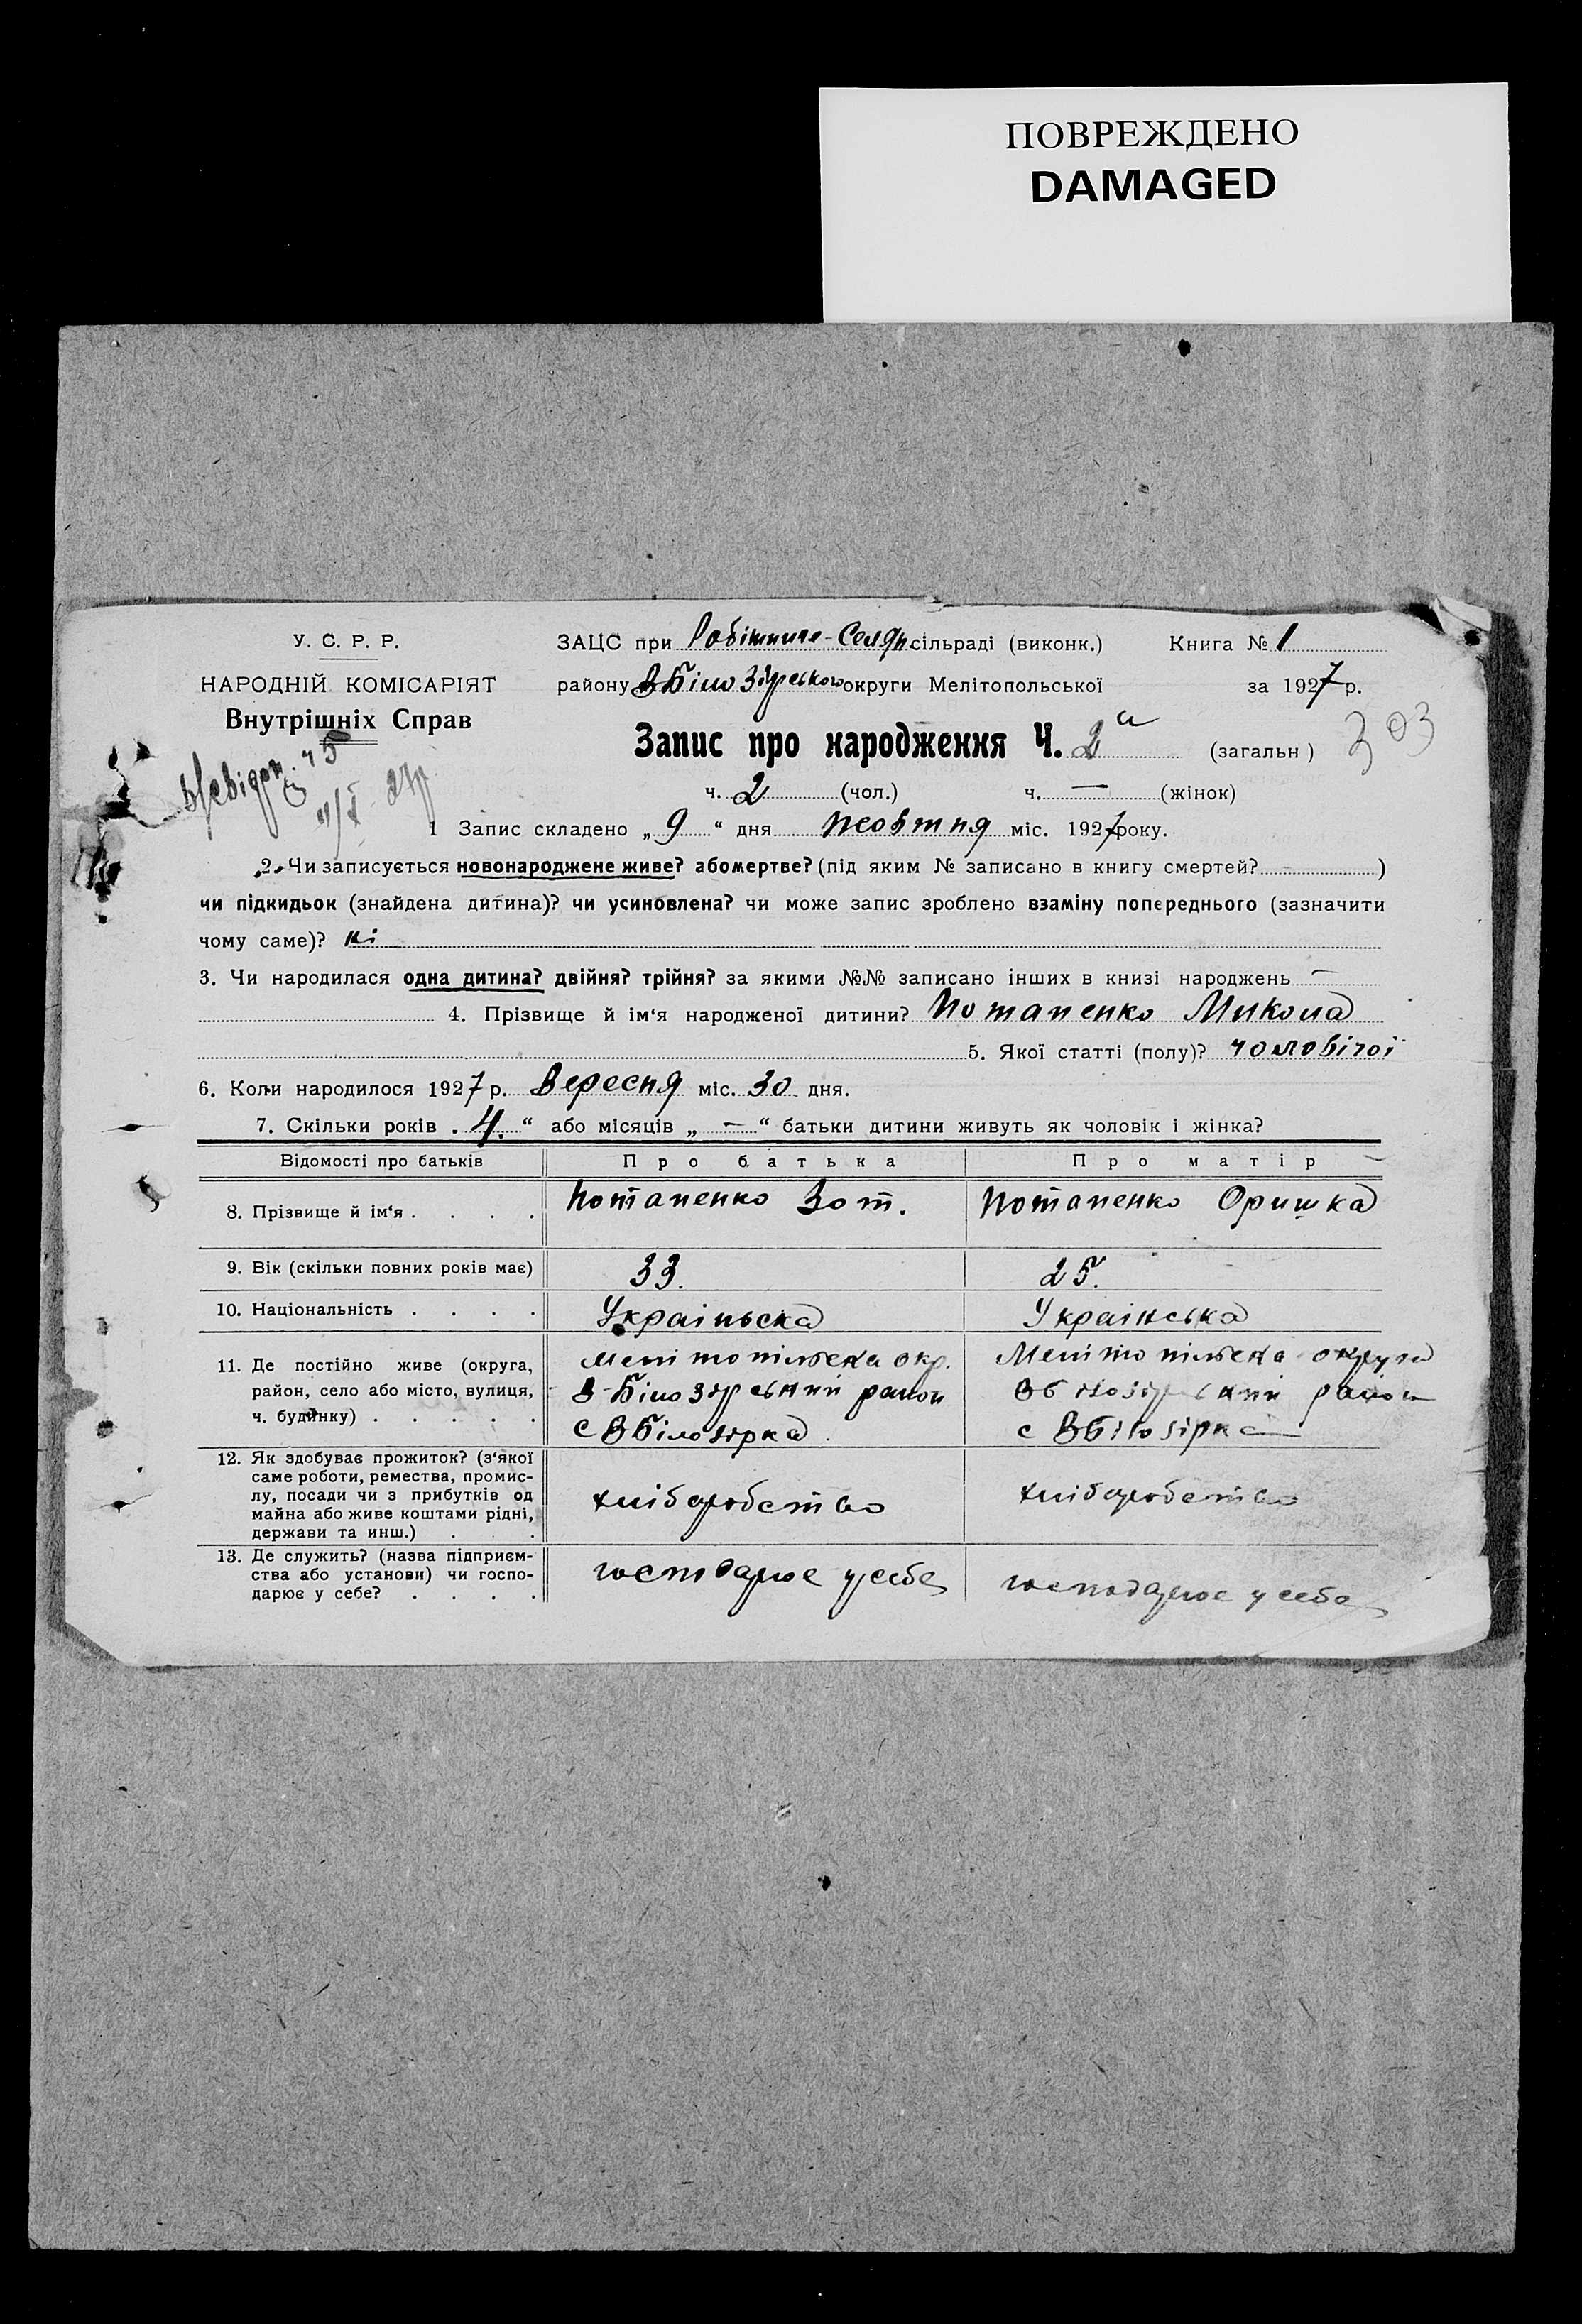 ПОВРЕЖДЕНО
DAMAGED
У. С. Р. Р.
НАРОДНІЙ КОМІСАРІЯТ
Внутрішніх Справ
ЗАЦС при Робітниче-Селян. сільраді (виконк.) Книга № 1
району ВБілозірського округи Мелітопольської за 1927 р.
Запис про народження Ч. 2а (загальн) 303
ч. 2 (чол.) ч. — (жінок)
1 Запис складено „9“ дня жовтня міс. 1927 року.
2. Чи записується новонароджене живе? абомертве? (під яким № записано в книгу смертей? — )
чи підкидьок (знайдена дитина)? чи усиновлена? чи може запис зроблено взаміну попереднього (зазначити
чому саме)? ні
3. Чи народилася одна дитина? двійня? трійня? за якими №№ записано інших в книзі народжень —
4. Прізвище й ім‘я народженої дитини? Потапенко Микола
5. Якої статті (полу)? чоловічої
6. Коли народилося 1927 р. вересня міс. 30 дня.
7. Скільки років „4.“ або місяців „—“ батьки дитини живуть як чоловік і жінка?
Відомості про батьків Про батька Про матір
8. Прізвище й ім‘я . . . . Потапенко Зот. Потапенко Оришка
9. Вік (скільки повних років має) 33. 25.
10. Національність . . . . Україньска Українська
11. Де постійно живе (округа, Мелітопільська окр. Мелітопільська округа
район, село або місто, вулиця, В-Білозірський район ВБілозірський район
ч. будинку) . . . . . с ВБілозірка. с ВБілозірка
12. Як здобуває прожиток? (з‘якої
саме роботи, ремества, промис-
лу, посади чи з прибутків од хліборобство хліборобство
майна або живе коштами рідні,
держави та инш.) . .
13. Де служить? (назва підприєм-
ства або установи) чи госпо- господарює у себе господарює у себе
дарює у себе? . . . .